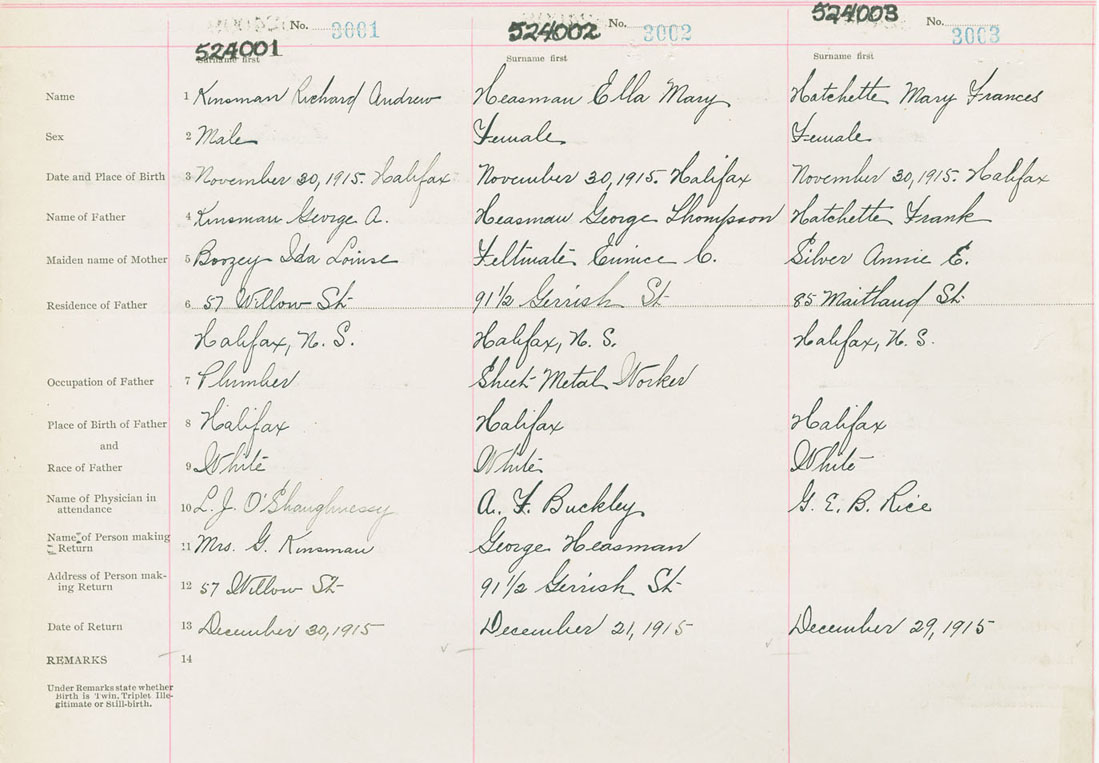 No. 3001 No. 3002 524003 No. 3003
524001 524002
Surname first Surname first Surname first
Name 1 Kinsman Richard Andrew Heasman Ella Mary Hatchette Mary Frances
Sex 2 Male Female Female
Date and Place of Birth 3 November 30, 1915. Halifax November 30, 1915. Halifax November 30, 1915. Halifax
Name of Father 4 Kinsman George A. Heasman George Thompson Hatchette Frank
Maiden name of Mother 5 Boozey Ida Louise Feltmate Eunice C. Silver Annie E.
Residence of Father 6 57 Willow St. 91 1/2 Gerrish St. 85 Maitland St.
Halifax, N. S. Halifax, N. S. Halifax, N. S.
Occupation of Father 7 Plumber Sheet Metal Worker
Place of Birth of Father 8 Halifax Halifax Halifax
and
Race of Father 9 White White White
Name of Physician in
attendance 10 L. J. O'Shaughnessy A. F. Buckley G. E. B. Rice
Name of Person making
Return 11 Mrs. G. Kinsman George Heasman
Address of Person mak-
ing Return 12 57 Willow St. 91 1/2 Gerrish St.
Date of Return 13 December 30, 1915 December 21, 1915 December 29, 1915
REMARKS 14
Under Remarks state whether
Birth is Twin, Triplet Ille-
gitimate or Still-birth.